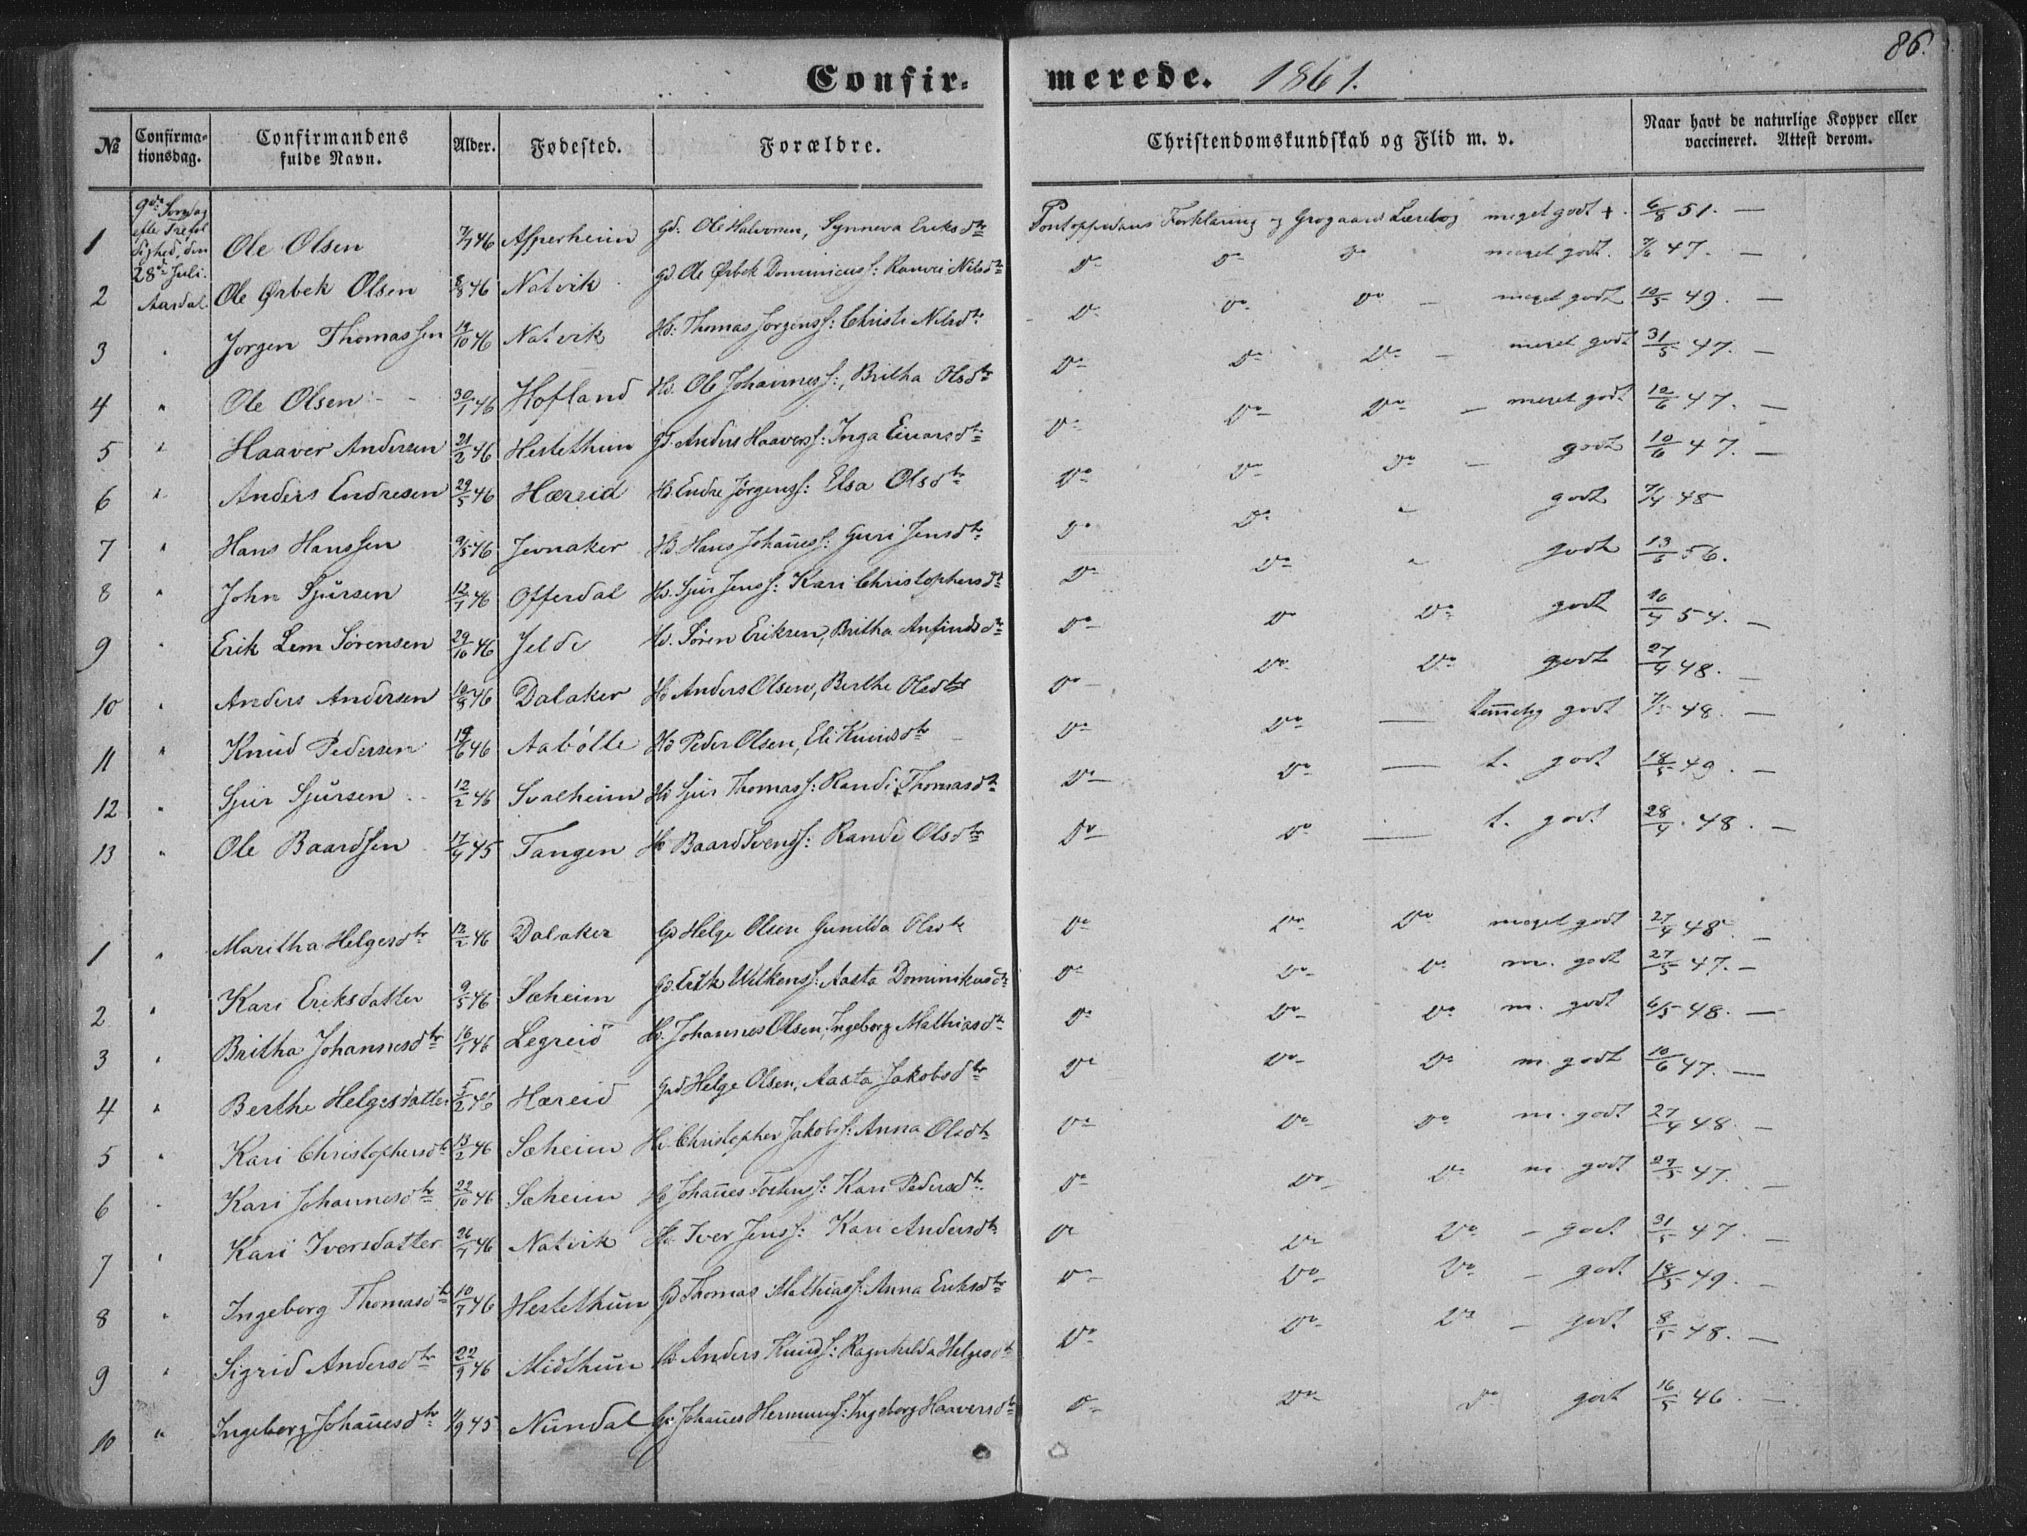 86.
Confir- merede. 1861.
№ Confirma-tionsdag. Confirmandens fulde Navn. Alder. Fødested. Forældre. Christendomskundskab og Flid m. v. Naar havt de naturlige Kopper eller vaccineret. Attest derom.
9de Søndag efter Trefoldighed, den 28de Juli. Aardal.
1 Ole Olsen 7/7 46 Asperheim Gd. Ole Halvorsen, Synneva Eriksdtr Pontoppidans Forklaring og Grogaards Lærebog meget godt +. 6/8 51. —
2 Ole Ørbek Olsen 8/8 46 Natvik Gd. Ole Ørbek Dominicuss: Ranvei Nilsdtr Do Do Do meget godt. 7/6 47. —
3 " Jørgen Thomassen 19/10 46 Natvik Hd. Thomas Jørgenss: Christi Nilsdtr Do Do Do — meget godt 10/5 49. —
4 " Ole Olsen 30/1 46 Hofland Hd. Ole Johanness:, Britha Olsdtr Do Do Do — meget godt 31/5 47. —
5 " Haaver Andersen 21/2 46 Hestethun Gd. Anders Haaverss: Inga Einarsdtr Do Do Do — meget godt 10/6 47. —
6 " Anders Endresen 29/5 46 Hæreid Hd. Endre Jørgenss: Elsa Olsdtr Do Do Do — godt 10/6 47. —
7 " Hans Hanssen 9/5 46 Jevnaker Hd. Hans Johañess: Guri Jensdtr Do Do " godt 7/4 48
8 " John Sjursen 12/1 46 Offerdal Hd. Sjur Jenss: Kari Christophersdtr Do Do " godt 13/6 56.
9 " Erik Lem Sørensen 29/10 46 Jelde Hd. Søren Eriksen, Britha Anfindsdtr Do Do Do godt 16/7 54. —
10 " Anders Andersen 10/8 46 Dalaker Hd Anders Olsen, Berthe Olsdtr Do Do Do godt 27/4 48. —
11 " Knud Pedersen 19/6 46 Aabølle Hd Peder Olsen, Eli Knudsdtr Do Do — temelig godt 7/5 48. —
12 " Sjur Sjursen 12/2 46 Svalheim Hd Sjur Thomass: Randi Thomasdtr Do Do — t. godt 18/5 49. —
13 " Ole Baardsen 17/4 45 Tangen Hd Baard Svends: Randi Olsdtr Do Do — t. godt 28/4 48. —
1 " Maritha Helgesdtr 12/2 46 Dalaker Gd Helge Olsen Gunilda Olsdtr Do Do Do meget godt 27/4 48. —
2 " Kari Eriksdatter 9/5 46 Sæheim Gd. Erik Wilkenss: Aasta Dominikusdtr Do Do Do m. godt 27/5 47. —
3 " Britha Johannesdtr 16/1 46 Legreid Hd. Johannes Olsen, Ingeborg Mathiasdtr Do Do Do m. godt 6/5 48. —
4 " Berthe Helgesdatter 5/2 46 Hæreid Gd Helge Olsen, Aasta Jakobsdtr Do Do Do m. godt 10/6 47. —
5 " Kari Christophersdtr 13/2 46 Sæheim Hd Christopher Jakobss: Anna Olsdtr Do Do Do m. godt 27/4 48. —
6 " Kari Johannesdtr 22/10 46 Sæheim Hd Johañes Tostens: Kari Pedersdtr. Do Do Do m. godt 27/5 47. —
7 " Kari Iversdatter 26/1 46 Natvik Hd. Iver Jenss: Kari Andersdtr Do Do Do — godt 31/5 47. —
8 " Ingeborg Thomasdtr 10/7 46 Hestethun Gd Thomas Mathiass: Anna Eriksdtr Do Do Do — godt 18/5 49. —
9 " Sigrid Andersdtr 22/9 46 Midthun Hd Anders Knuds: Ragnhilda Helgesdtr Do Do Do — godt 8/5 48. —
10 " Ingeborg Johañesdtr 11/9 45 Nundal Gd. Johañes Hermunds: Ingeborg Haaversdtr Do Do Do godt 16/5 46. —